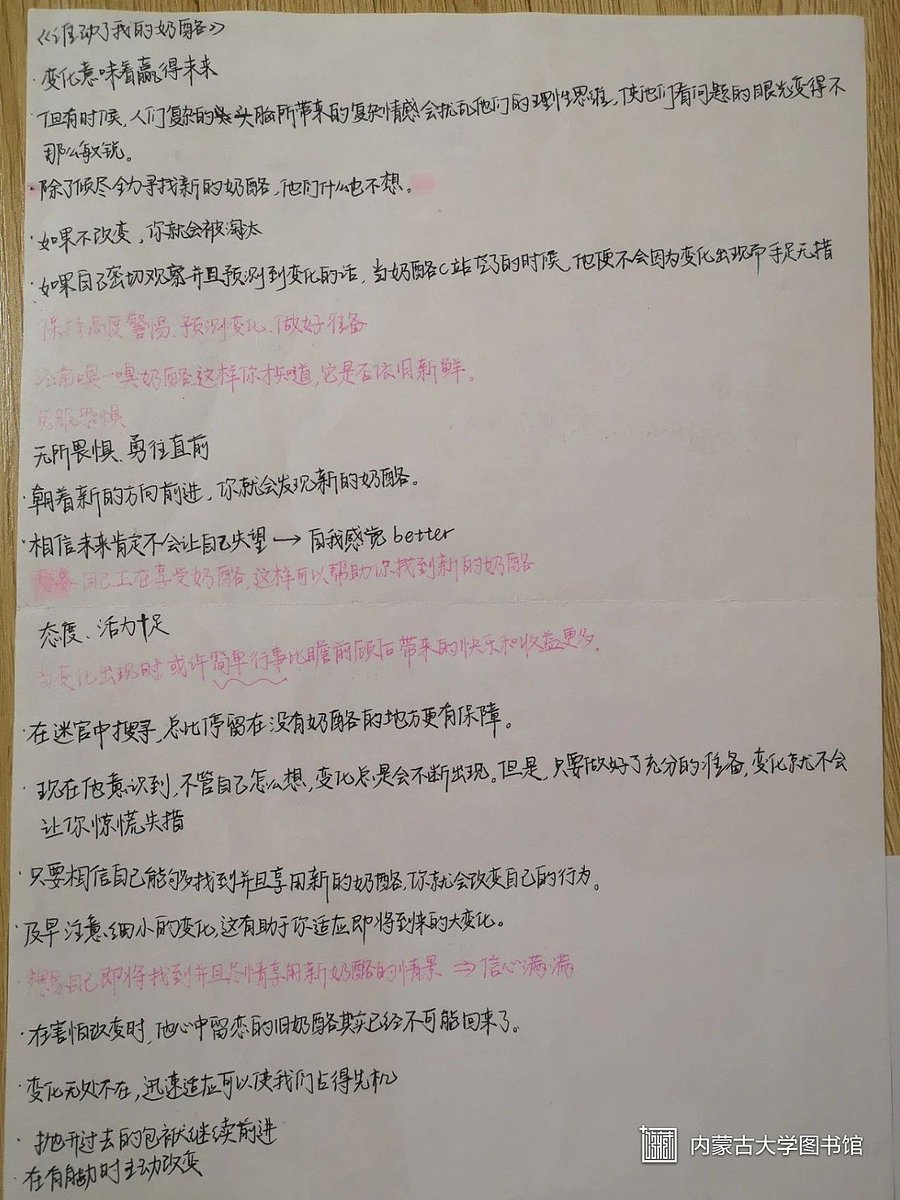 《谁动了我的奶酪》
·变化意味着赢得未来
·但有时候,人们复杂的头脑所带来的复杂情感会扰乱他们的理性思维,使他们看问题的眼光变得不
那么敏锐。
·除了倾尽全力寻找新的奶酪,他们什么也不想。
·如果不改变,你就会被淘汰
·如果自己密切观察并且预测到变化的话,当奶酪C站空了的时候,他便不会因为变化出现而手足无措
保持高度警惕、预测变化、做好准备
经常嗅一嗅奶酪,这样你才知道,它是否依旧新鲜。
克服恐惧
无所畏惧、勇往直前
·朝着新的方向前进,你就会发现新的奶酪。
·相信未来肯定不会让自己失望→自我感觉better
自己正在享受奶酪,这样可以帮助你找到新的奶酪
态度、活力十足
当变化出现时,或许简单行事比瞻前顾后带来的快乐和收益更多。
·在迷宫中搜寻,总比停留在没有奶酪的地方更有保障。
·现在他意识到,不管自己怎么想,变化总是会不断出现。但是,只要做好了充分的准备,变化就不会
让你惊慌失措
·只要相信自己能够找到并且享用新的奶酪,你就会改变自己的行为。
·及早注意细小的变化,这有助于你适应即将到来的大变化。
·想象自己即将找到并且尽情享用新奶酪的情景⇒信心满满
·在害怕改变时,他心中留恋的旧奶酪其实已经不可能回来了。
·变化无处不在,迅速适应可以使我们占得先机
·抛开过去的包袱继续前进
在有 时主动改变
内蒙古大学图书馆